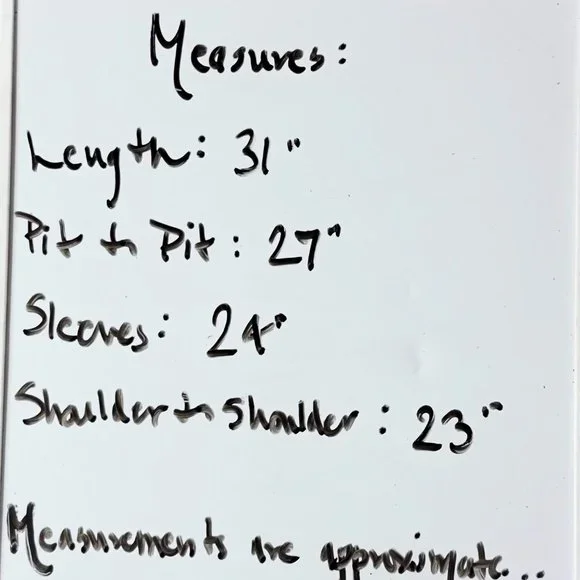 Measures:
Length: 31"
Pit to Pit: 27"
Sleeves: 24"
Shoulder to Shoulder: 23"
Measurements are approximate...